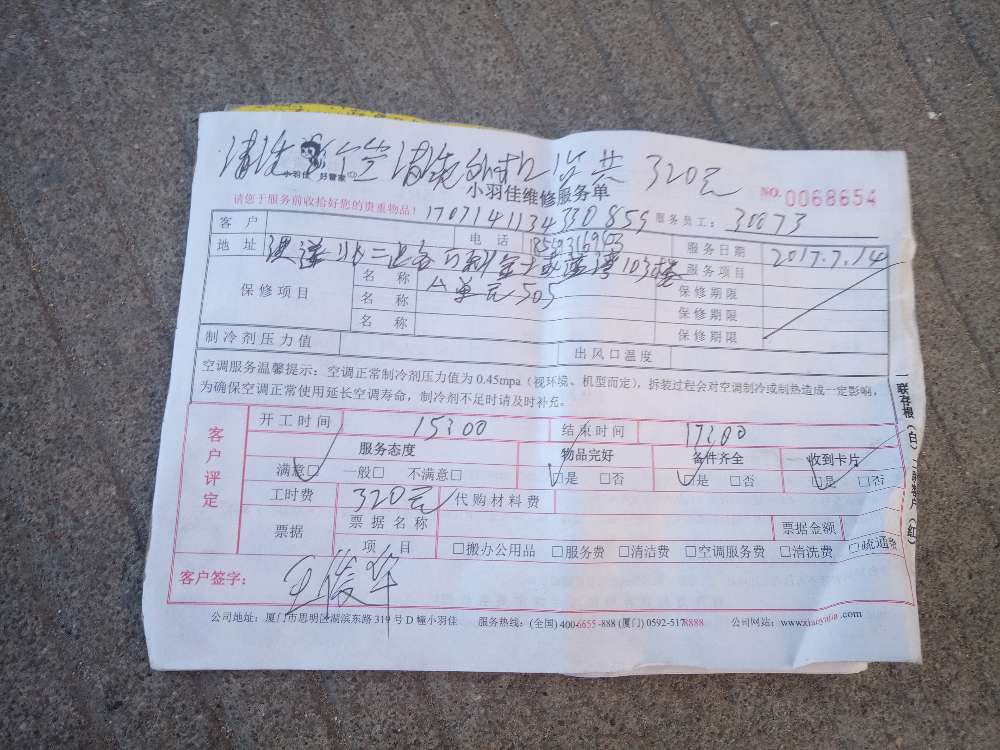 清洗 空 清洗外机 共 320元
小羽佳 好管家
小羽佳维修服务单
NO. 0068654
请您于服务前收拾好您的贵重物品! 170714113433 0859 服务员工: 30073
客户 电话 服务日期 2017.7.14
地址 103楼 服务项目
保修项目 名称 A单元505 保修期限
名称 保修期限
名称 保修期限
制冷剂压力值 出风口温度
空调服务温馨提示:空调正常制冷剂压力值为 0.45mpa(视环境、机型而定),拆装过程会对空调制冷或制热造成一定影响,
为确保空调正常使用延长空调寿命,制冷剂不足时请及时补充。
客户评定
开工时间 15:00 结束时间 17:00
服务态度 物品完好 备件齐全 收到卡片
满意□ 一般□ 不满意□ □是 □否 □是 □否 □是 □否
工时费 320元 代购材料费
票据 票据名称 票据金额
项目 □搬办公用品 □服务费 □清洁费 □空调服务费 □清洗费 □疏通费
客户签字: 王俊华
公司地址:厦门市思明区湖滨东路 319 号 D 幢小羽佳 服务热线:(全国) 400-6655-888 (厦门) 0592-5178888 公司网站:www.xiaoyujia.com
一联存根(白)二联客户(红)